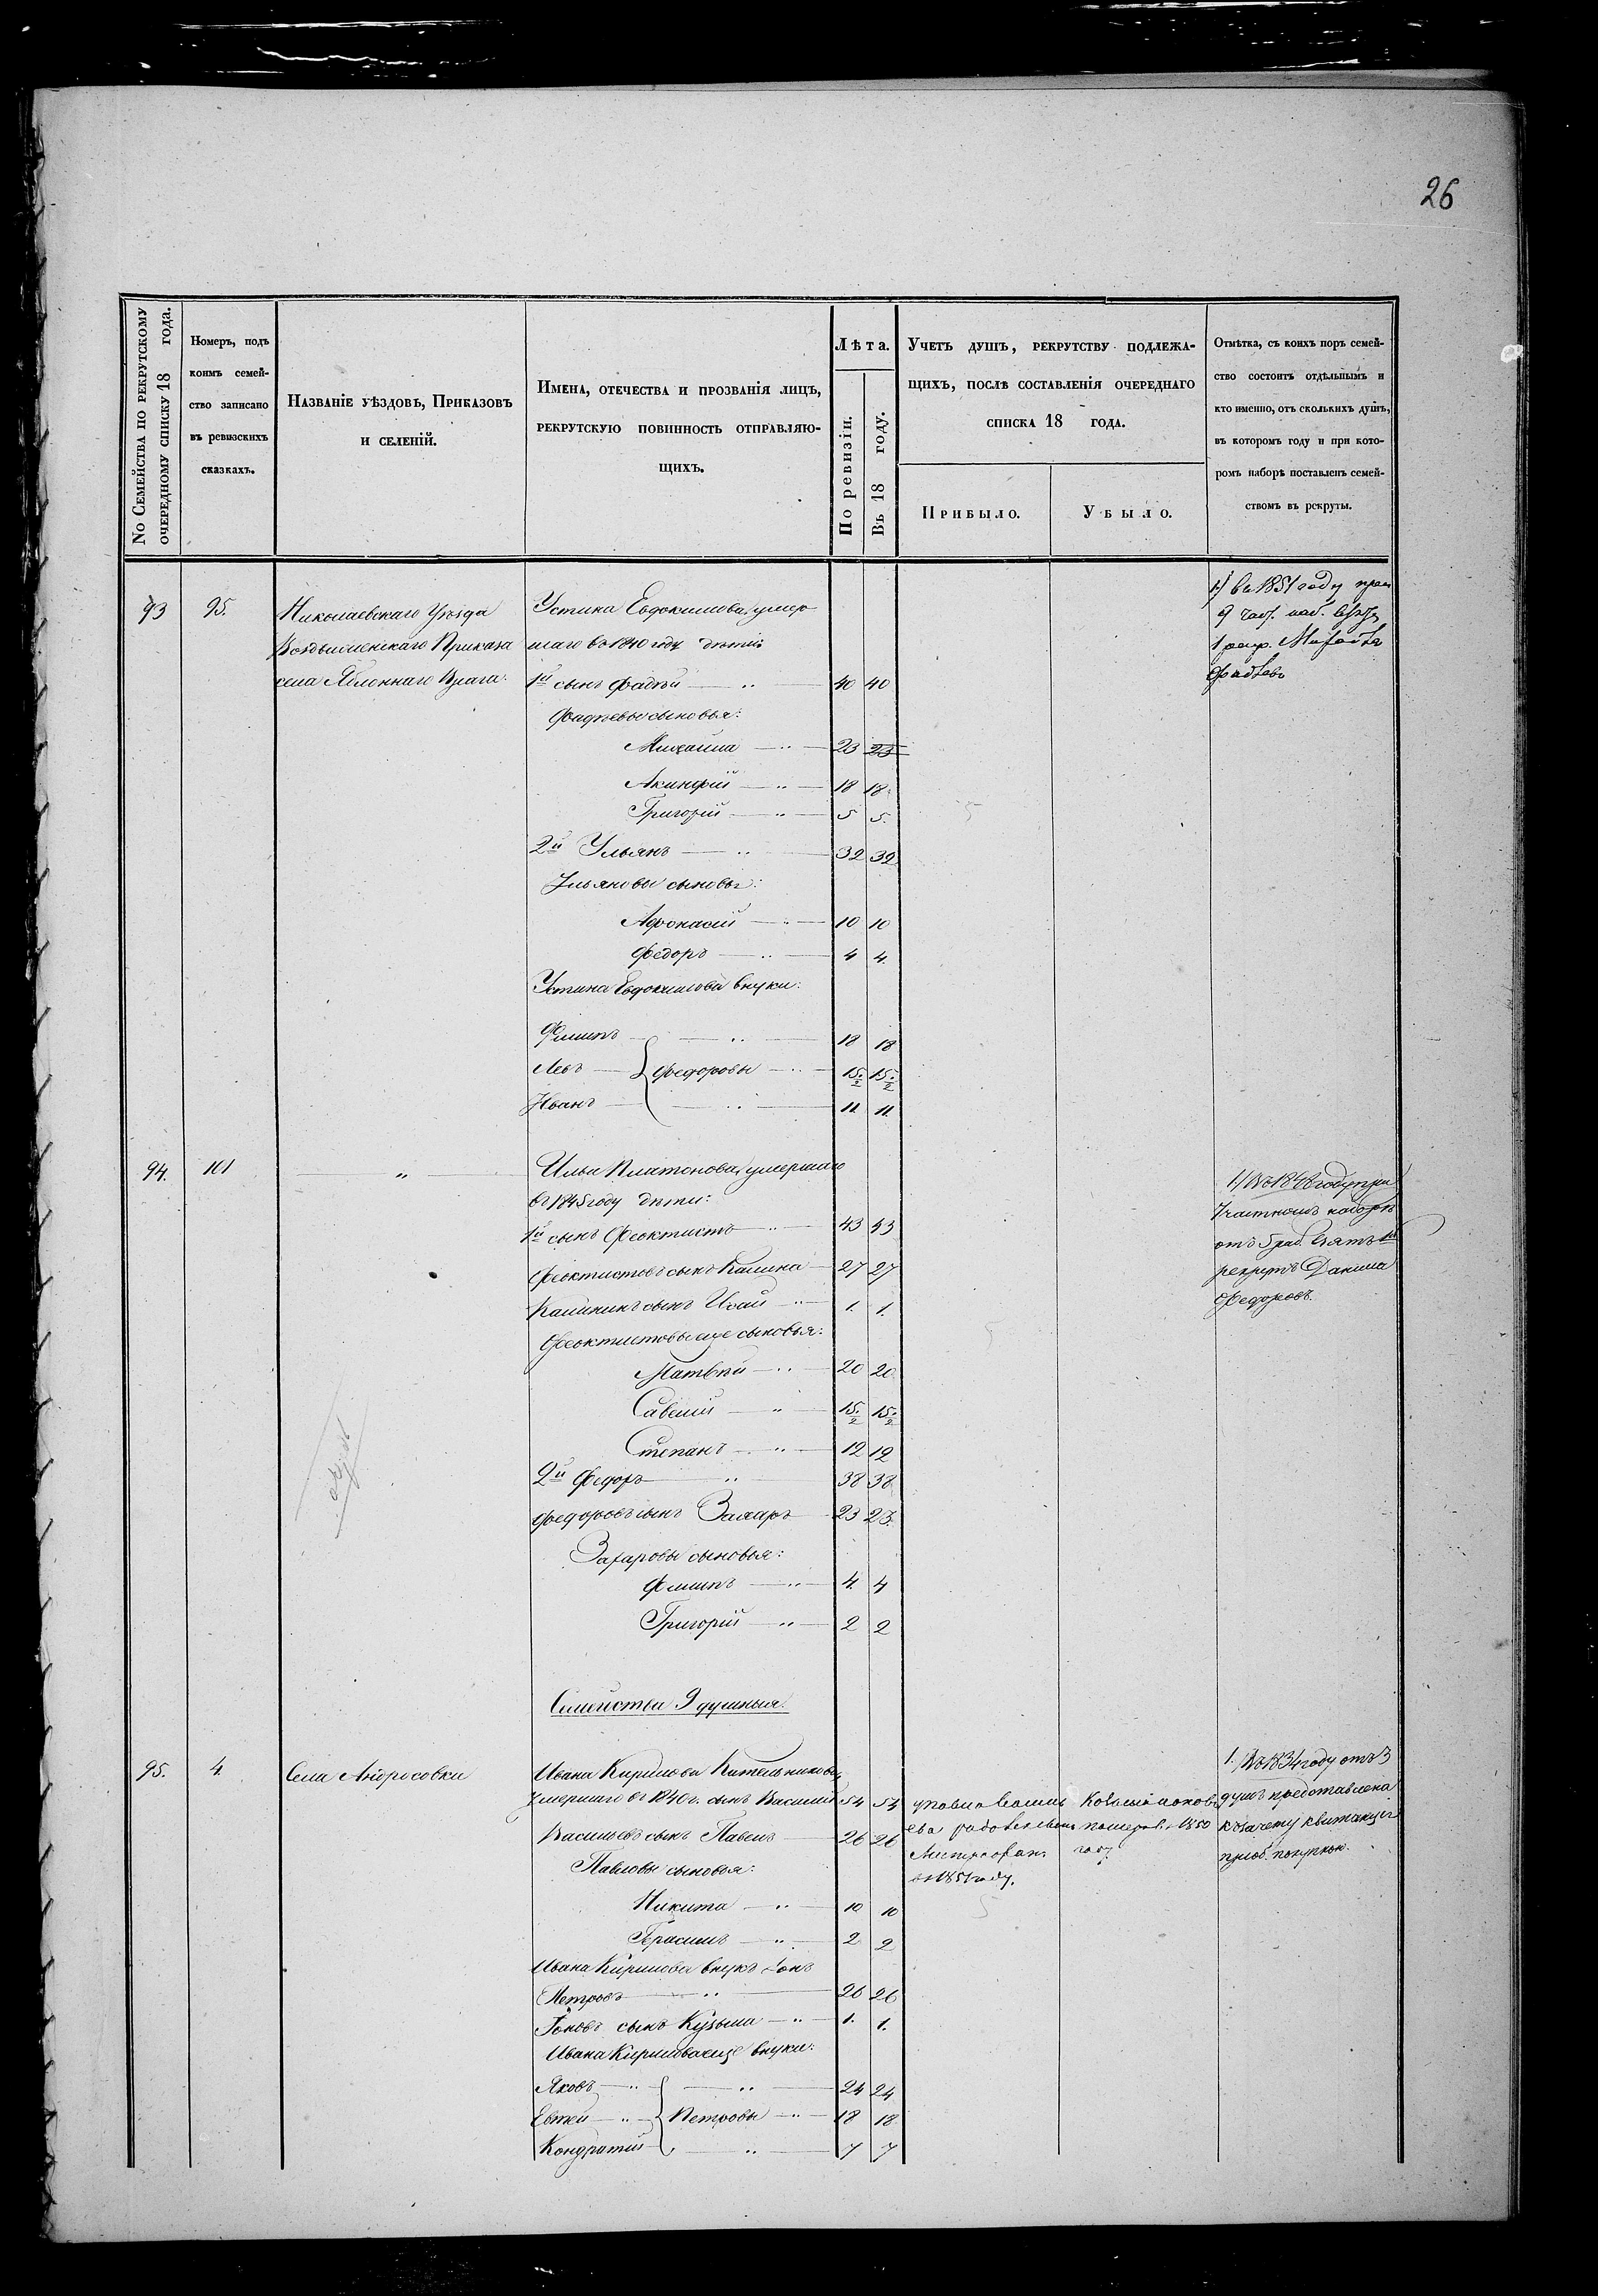 26
No Семейства по рекрутскому очередному списку 18 года.
Номеръ, подъ
коимъ семей-
ство записано
въ ревизскихъ
сказкахъ.
Названіе уѣздовъ, Приказовъ
и селеній.
Имена, отечества и прозванія лицъ,
рекрутскую повинность отправляю-
щихъ.
Лѣта.
По ревизіи.
Въ 18 году.
Учетъ душъ, рекрутству подлежа-
щихъ, послѣ составленія очереднаго
списка 18 года.
Прибыло.
Убыло.
Отмѣтка, съ коихъ поръ семей-
ство состоитъ отдѣльнымъ и
кто именно, отъ сколькихъ душъ,
въ которомъ году и при кото-
ромъ наборѣ поставленъ семей-
ствомъ въ рекруты.
93 95. Николаевскаго Уѣзда
Воздвиженскаго Приказа
села Яблоннаго Врага.
Устина Евдокимова, умер
шаго въ 1840 году дѣти:
1й сынъ Фадѣй 40 40
Фадѣевы сыновья:
Михаила 23 23
Акинфій 18 18
Григорій 5 5
2й Ульянъ 32 32
Ульяновы сыновья:
Афонасій 10 10
Федоръ 4 4
Устина Евдокимова внуки:
Филипъ 18 18
Левъ Федоровы 15 1/2 15 1/2
Иванъ 11 11
1) въ 1851 году при
9 част. наб. взятъ
1 рекр. Михайла
Фадѣевъ
94. 101 "
Ильи Платонова, умершаго
въ 1845 году дѣти:
1й сынъ Феоктистъ 43 43
Феоктистовъ сынъ Калина 27 27
Калининъ сынъ Исай 1. 1.
Феоктистовы еще сыновья:
Матвѣй 20 20
Савелій 15 1/2 15 1/2
Степанъ 12 12
2й Федоръ 38 38
Федоровъ сынъ Захаръ 23 23
Захаровы сыновья:
Филипъ 4 4
Григорій 2 2
1) Въ 1848 году при
7 частномъ наборѣ
отъ 5 раб. взятъ въ
рекруты Данила
Федоровъ.
Семейства 9 душныя.
95. 4. Села Андросовки
Ивана Кирилова Кательникова,
Умершаго въ 1840 г. сынъ Василій 54 54
Васильевъ сынъ Павелъ 26 26
Павловы сыновья:
Никита 10 10
Герасимъ 2 2
Ивана Кирилова внукъ Іонъ
Петровъ 26 26
Іоновъ сынъ Кузьма 1. 1.
Ивана Кирилова еще внуки:
Яковъ 24 24
Евтей Петровы 18 18
Кондратій 7 7
въ 1851 году.
помер. въ 1850
году
1. Въ 1834 году отъ 3
душъ представлена
къ зачету квитанція
пріоб. покупкою.